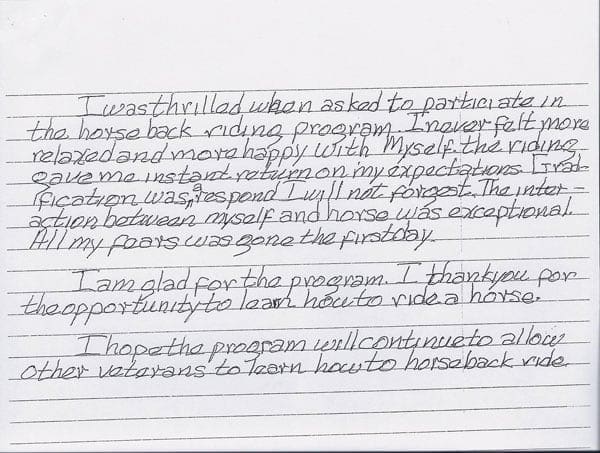 I was thrilled when asked to particiate in
the horse back riding program. I never felt more
relaxed and more happy with Myself. the riding
gave me instant return on my expectations. Grat-
ification was a respond I will not forgest. The inter-
action between myself and horse was exceptional.
All my fears was gone the first day.
I am glad for the program. I thank you for
the opportunity to learn how to ride a horse.
I hope the program will continue to allow
other veterans to learn how to horseback ride.